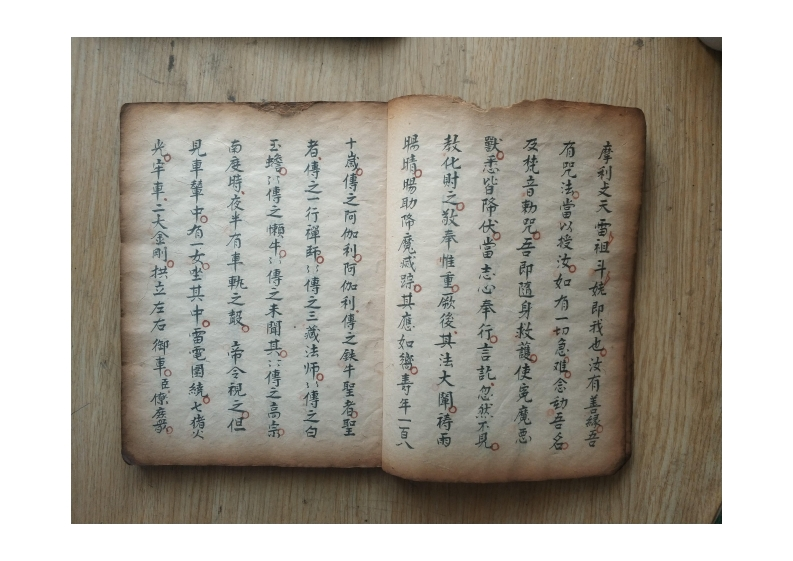 摩利攴天雷祖斗姥即我也汝有善緣吾
有咒法當以授汝如有一切急难念動吾名
及梵音勅咒吾即隨身救護使寃魔惡
獸悉皆降伏當志心奉行言訖忽然不見
教化財之敬奉惟重厥後其法大闡禱雨
暘晴暘助降魔滅踪其應如响壽年一百八
十歲傳之阿伽利阿伽利傳之鉄牛聖者聖
者傳之一行禪師〻傳之三藏法師〻傳之白
玉蟾〻傳之懶牛〻傳之未聞其〻傳之高宗
南庭時夜半有車軌之聲帝令視之但
見車輦中有一女坐其中雷電圍繞七猪火
光宰車二大金剛拱立左右御車臣僚